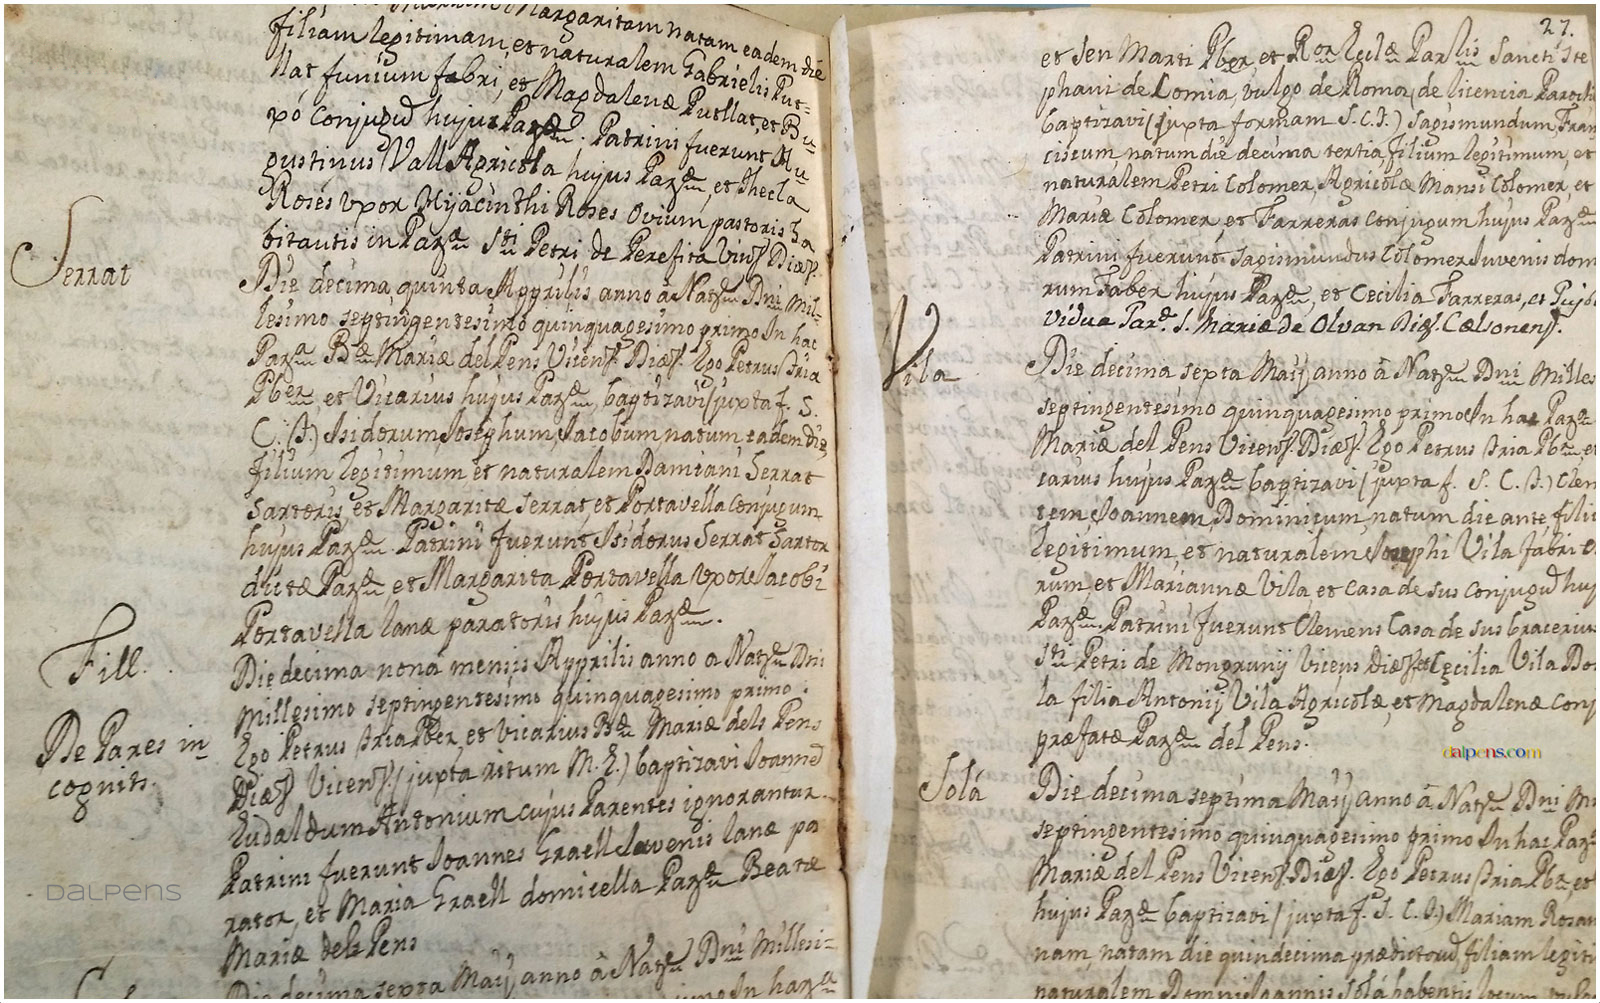 Margaritam natam eadem die
filiam legitimam, et naturalem Gabrielis Put-
llat, funium fabri, et Magdalenæ Putllat, et Bu
xó Conjugũ hujus Paræ. Patrini fuerunt Au
gustinus Vall Agricola hujus Paræ, et Thecla
Rosés uxor Hyacinthi Roses ovium pastoris ha
bitantis in Para Sti Petri de Perefita Vicen. Diæs.
Serrat
Die decima quinta Apprilis anno à Nate Dni Mil-
lesimo septingentesimo quinquagesimo primo In hac
Para Bæ Mariæ del Pens Vicens. Diæs. Ego Petrus Tria
Pber, et Vicarius hujus Paræ, baptizavi (juxta f. S.
C. T.) Isidorum, Josephum, Jacobum, natum eadem die,
filium legitimum et naturalem Damiani Serrat
Sartoris, et Margaritæ Serrat, et Portavella conjugum
hujus Paræ. Patrini fuerunt Isidorus Serrat Sartor
dictæ Paræ et Margarita Portavella uxor Jacobi
Portavella lanæ paratoris hujus Paræ.
Fill.
De Pares in
cognits.
Die decima nona mensis Apprilis anno a Nate Dni
Millesimo septingentesimo quinquagesimo primo:
Ego Petrus Tria Pber, et Vicarius Bæ Mariæ dels Pens
Diæs Vicens. (juxta ritum M. E.) baptizavi Joanne
Eudaldum Antonium cujus Parentes ignorantur.
Patrini fuerunt Joannes Graell Juvenis lanæ pa
rator, et Maria Graell domicella Paræ Beatæ
Mariæ dels Pens
Die decima sexta Maij anno à Nate Dni Millesi-
In hac
DALPENS
27.
et Sen Marti Pber, et Ror Eclæ Parlis Sancti Ste
phani de Comia, vulgo de Roma, de licencia Parochi
baptizavi (juxta formam S. C. T.) Sagismundum, Fran
ciscum, natum die decima tertia, filium legitimum, et
naturalem Petri Colomer, Agricolæ Mansi Colomer, et
Mariæ Colomer et Farreras conjugum hujus Paræ
Patrini fuerunt Sagismundus Colomer Juvenis dom
rum Faber hujus Paræ, et Cecilia Farreras, et Pujol
Vidua Par. S. Mariæ de Olvan Diæs. Cælsonens.
Vila
Die decima sexta Maij anno à Nate Dni Milles
septingentesimo quinquagesimo primo In hac Para
Mariæ del Pens Vicens. Diæs. Ego Petrus Tria Pber, et
carius hujus Paræ baptizavi (juxta f. S. C. T.) Clem
tem, Joannem, Dominicum, natum die ante, filiu
legitimum, et naturalem Josephi Vila fabri
rum, et Mariannæ Vila, et Casa de sus conjugũ huj
Paræ. Patrini fuerunt Clemens Casa de sus bracerius
Sti Petri de Mongrunij Vicens Diæs et Cecilia Vila Do
la filia Antonij Vila Agricolæ, et Magdalenæ conj
præfatæ Paræ del Pens.
dalpens.com
Solá
Die decima septima Maij anno à Nate Dni Mi
septingentesimo quinquagesimo primo In hac Para
Mariæ del Pens Vicens. Diæs. Ego Petrus Tria Pber, et
hujus Paræ baptizavi (juxta f. S. C. T.) Mariam Rosam
nam, natam die quindecima prædictorũ, filiam legiti
naturalem Joannis Solá